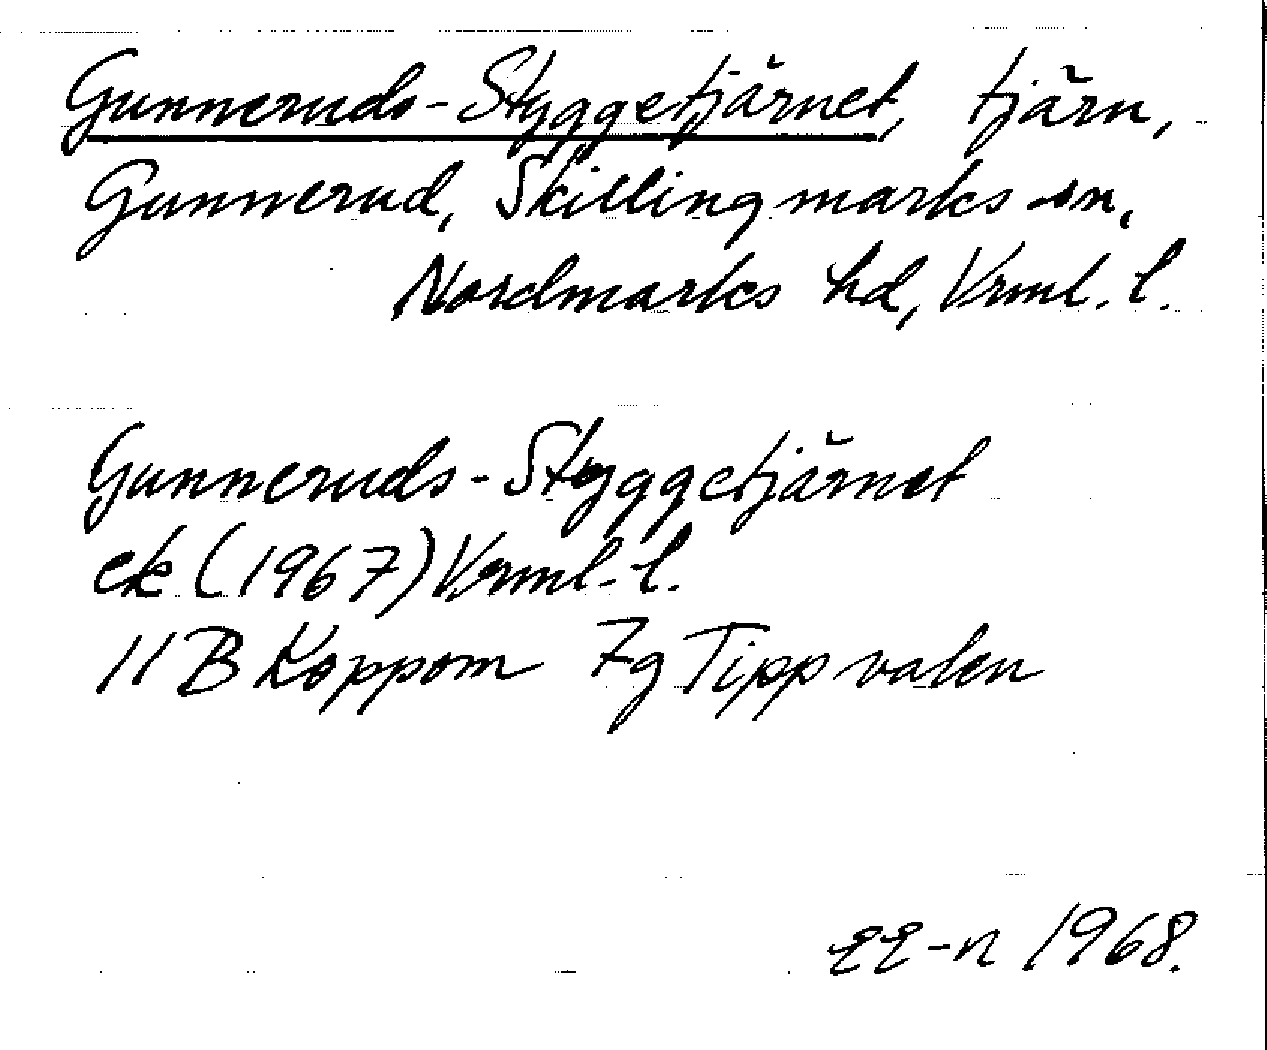 Gunneruds-Styggetjärnet, tjärn,
Gunnerud, Skillingmarks sn,
Nordmarks hd, Vrml. l.
Gunneruds-Styggetjärnet
ek (1967) Vrml. l.
11 B Koppom 7g Tippvalen
EE-n 1968.